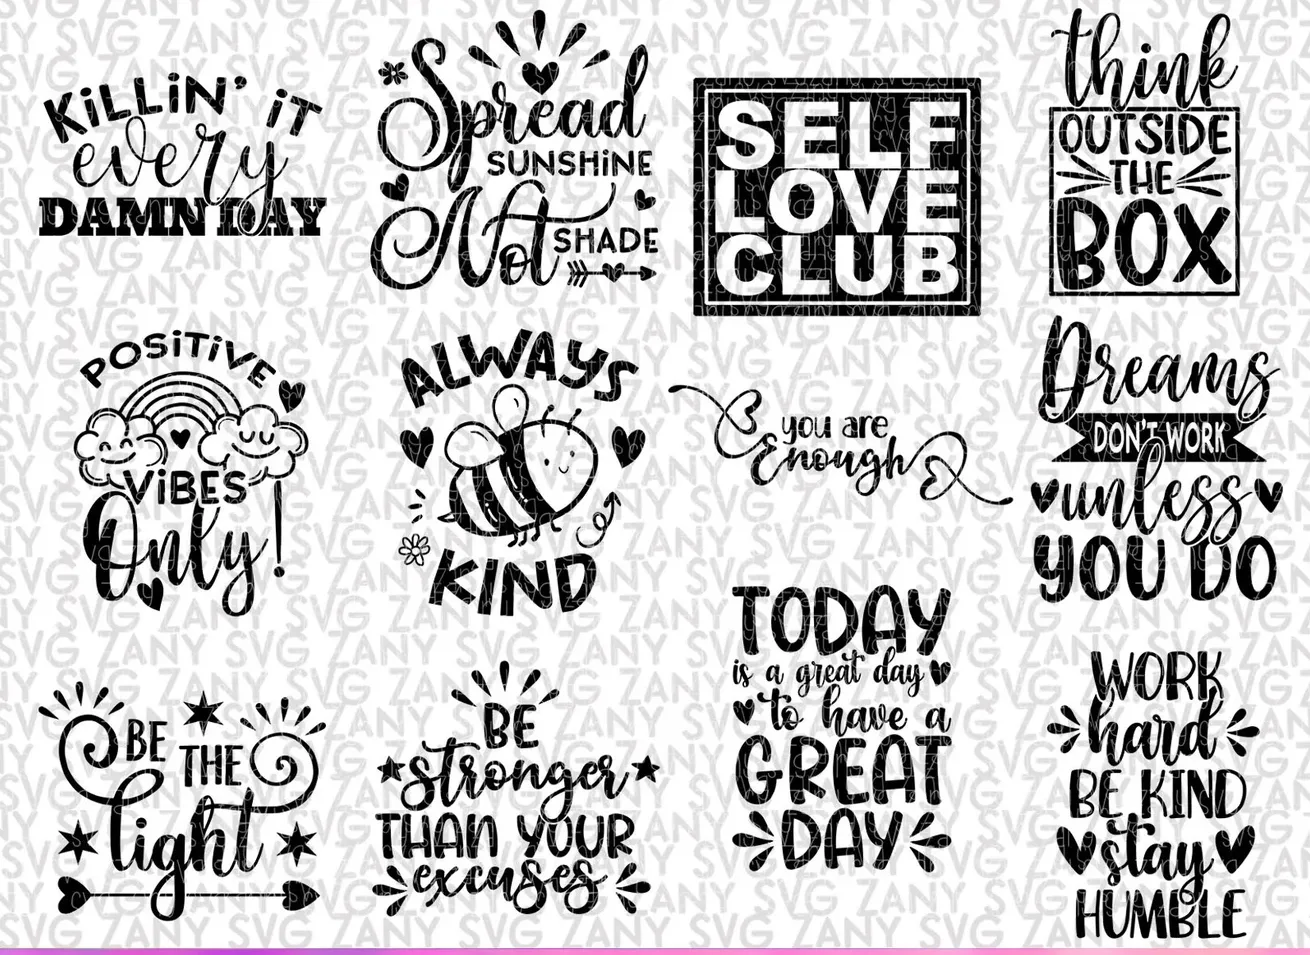 KiLLiN' iT
every
DAMN DAY
Spread
SUNSHiNE
Not SHADE
SELF
LOVE
CLUB
think
OUTSIDE
THE
BOX
POSiTiVE
ViBES
Only!
ALWAYS
KIND
you are
Enough
Dreams
DON'T WORK
unless
YOU DO
BE THE
light
BE
stronger
THAN YOUR
excuses
TODAY
is a great day
to have a
GREAT
DAY
WORK
hard
BE KIND
stay
HUMBLE
SVG ZANY SVG ZANY SVG ZANY SVG ZANY